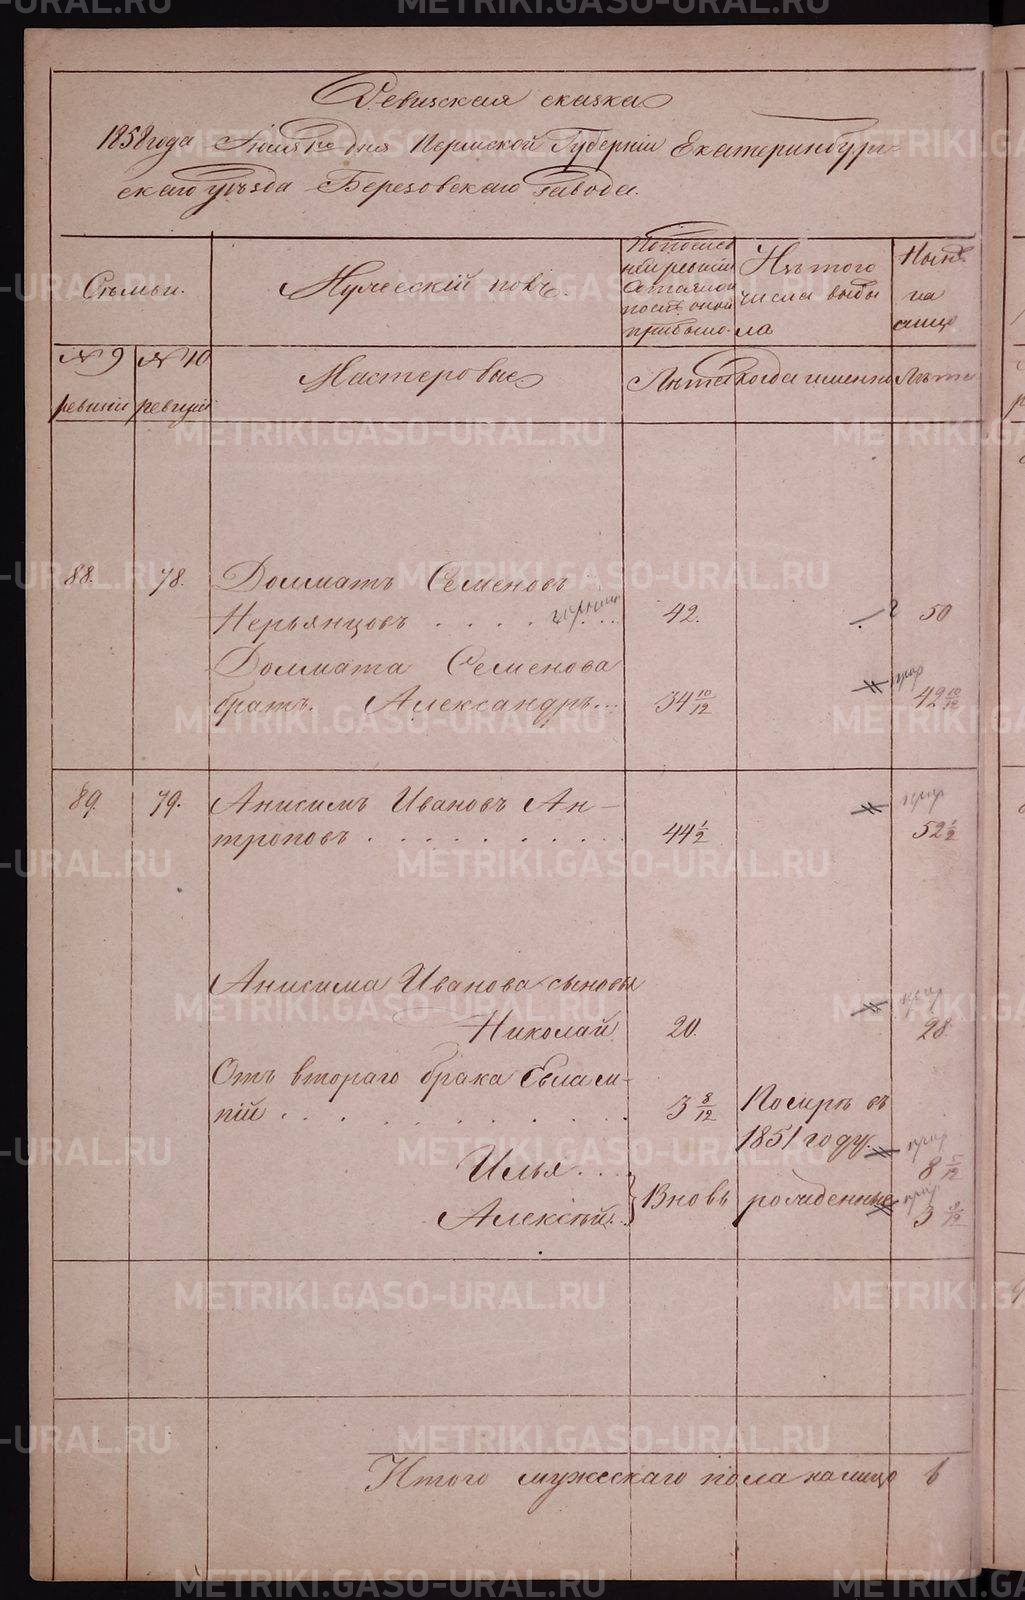 Ревизская сказка
1858 года Июня дня Пермской Губерніи Екатеринбург-
скаго уѣзда Березовскаго завода.
Семьи.
Мужескій полъ.
По послѣд
ней ревизіи
состояло и
послѣ оной
прибыло.
Изъ того
числа выбы
ло
Нынѣ
на
лицо
№ 9
ревизіи
№ 10
ревизіи
Мастеровые
Лѣта
когда именно
Лѣта
88. 78. Доммат Семеновъ
Нерьянцовъ . . . . 42. ? 50
Доммата Семенова
братъ. Александръ... 34 10/12 42 10/12
89. 79. Анисимъ Ивановъ Ан-
троповъ . . . . . . . . . 44 1/2 52 1/2
Анисима Иванова сыновья
Николай 20. 28
Отъ втораго брака Евлам-
пій . . . . . . . . . 3 8/12 Помръ въ
1851 году.
Илья . . . 8 5/12
Алексѣй . . } Вновь рожденные 3 9/12
Итого мужескаго пола на лицо 6
METRIKI.GASO-URAL.RU